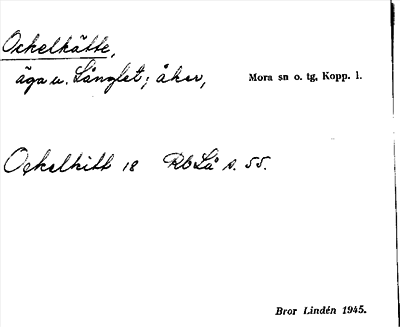 Ockelkätte,
äga u. Långlet; åker, Mora sn o. tg, Kopp. l.
Ockelkitt 18 RbLå s. 55.
Bror Lindén 1945.